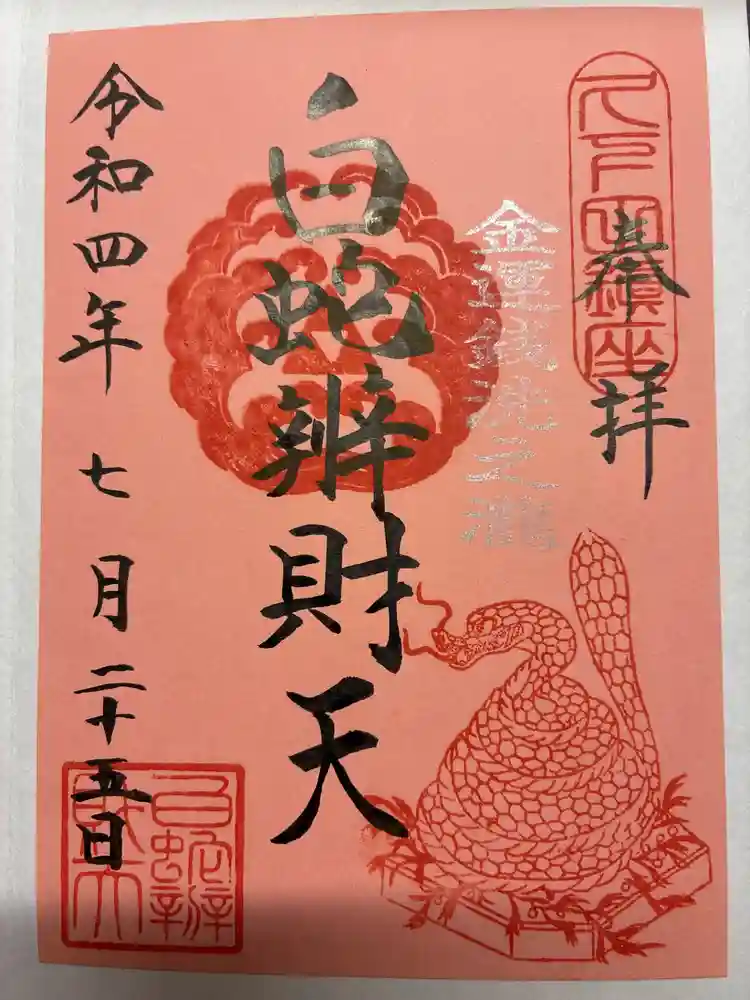 久下田鎮座
奉拝
金運銭洗之瀧
白蛇辨財天
令和四年七月二十五日
白蛇辨
財天